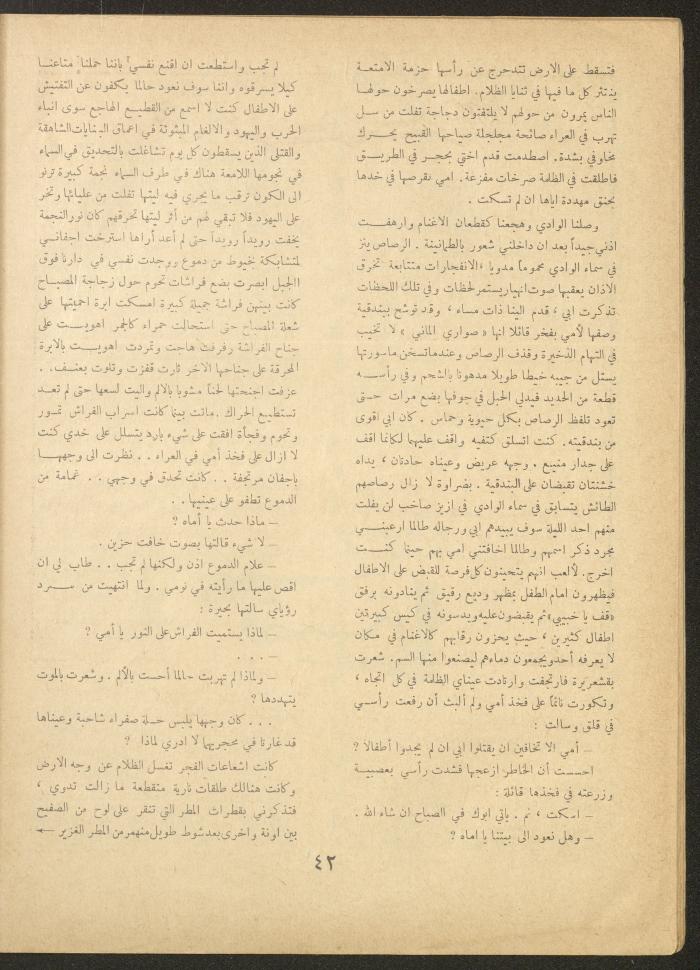 فتسقط على الارض تتدحرج عن رأسها حزمة الامتعـة
ينتثر كل ما فيها في ثنايا الظلام. اطفالها يصرخون حولهـا
الناس يمرون من حولهم لا يلتفتون دجاجة تفلت من سـل
تهرب في العراء صائحة مجلجلة صياحها القبيح يحـرك
مخاوفي بشدة. اصطدمت قدم اختي بحجر في الطريـق
فاطلقت في الظلمة صرخات مفزعة. امي تقرصها في خدها
بحنق مهددة اياها ان لم تسكت .
وصلنا الوادي وهجعنا كقطعان الاغنام وارهفـت
اذني جيداً بعد ان داخلني شعور بالطمأنينة . الرصاص يئز
في سماء الوادي محموماً مدويا «الانفجارات متتابعة تخرق
الاذان يعقبها صوت انهيار يستمر لحظات وفي تلك اللحظات
تذكرت ابي ، قدم الينا ذات مساء ، وقد توشح ببندقية
وصفها لأمي بفخر قائلا انها « صواري الماني » لا تخيب
في التهام الذخيرة وقذف الرصاص وعندما تسخن ماسورتها
يستل من جيبه خيطا طويلا مدهونا بالشحم وفي رأسـه
قطعة من الحديد فيدلي الحبل في جوفها بضع مرات حـتى
تعود تلفظ الرصاص بكل حيوية وحماس . كان ابي اقوى
من بندقيته. كنت اتسلق كتفيه واقف عليهما لكأنما اقف
على جدار منيع . وجهه عريض وعيناه حادتان ، يداه
خشنتان تقبضان على البندقية . بضراوة لا زال رصاصهم
الطائش يتسابق في سماء الوادي في ازيز صاخب لن يفلت
منهم احد الليلة سوف يبيدهم ابي ورجاله طالما ارعبنـي
مجرد ذكر اسمهم وطالما اخافتني امي بهم حينما كنـت
اخرج. لألعب انهم يتحينون كل فرصة للقبض على الاطفال
فيظهرون امام الطفل بمظهر وديع رفيق ثم ينادونه برفق
«قف يا حبيبي» ثم يقبضون عليه ويدسونه في كيس كبيرتين
اطفال كثيرين ، حيث يحزون رقابهم كالاغنام في مكان
لا يعرفه أحد ويجمعون دماءهم ليصنعوا منها السم. شعرت
بقشعريرة فارتجفت وارتادت عيناي الظلمة في كل اتجاه ،
وتكورت نائماً على فخذ أمي ولم ألبث أن رفعت رأسـي
في قلق وسالت :
– أمي الا تخافين ان يقتلوا ابي ان لم يجدوا أطفالا ؟
احسست أن الخاطر ازعجها فشدت رأسي بعصبيـة
وزرعته في فخذها قائلة :
– اسكت ، نم . ياتي ابوك في الصباح ان شاء الله .
– وهل نعود الى بيتنا يا اماه ؟
لم تجب واستطعت ان اقنع نفسي بأننا حملنا متاعنـا
كيلا يسرقوه واننا سوف نعود حالما يكفون عن التفتيش
على الاطفال كنت لا اسمع من القطيـع الهاجع سوى انباء
الحرب واليهود والالغام المبثوثة في اعماق البنايات الشاهقة
والقتلى الذين يسقطون كل يوم تشاغلت بالتحديق في السماء
في نجومها اللامعة هناك في طرف السماء نجمة كبيرة ترنو
الى الكون ترقب ما يجري فيه ليتها تفلت من عليائها وتخر
على اليهود فلا تبقي لهم من أثر ليتها تحرقهم كان نور النجمة
يخفت رويداً رويداً حتى لم أعد أراها استرخت اجفانـي
لمتشابكة بخيوط من دموع ووجدت نفسي في دارنا فوق
الجبل ابصرت بضع فراشات تحوم حول زجاجة المصبـاح
كانت بينهن فراشة جميلة كبيرة امسكت ابرة احميتها على
شعلة المصباح حتى استحالت حمراء كالجمر اهويـت على
جناح الفراشة رفرفت هاجت وتمردت اهويـت بالابرة
المحرقة على جناحها الاخر ثارت قفزت وتلوت بعنـف .
عزفت اجنحتها لحناً مشوبا بالألم واليت لسعها حتى لم تعـد
تستطيع الحراك . ماتت بينما كانت اسراب الفراش تـدور
وتحوم وفجأة افقت على شيء بارد يتسلل على خدي كنت
لا ازال على فخذ أمي في العراء .. نظرت الى وجههـا
باجفان مرتجفة .. كانت تحدق في وجهي .. غمامة من
الدموع تطفو على عينيها ..
– ماذا حدث يا أماه ؟
– لا شيء قالتها بصوت خافت حزين .
– علام الدموع اذن ولكنها لم تجب .. طاب لي ان
اقص عليها ما رأيته في نومي . ولما انتهيت من سـرد
رؤياي سالتها بحيرة :
– لماذا يستميت الفراش على النور يا أمي ؟
– . . .
– ولماذا لم تهرب حالما أحست بالألم . وشعرت بالموت
يتهددها ؟
. . . كان وجهها يلبس حـلة صفراء شاحبة وعيناها
قد غارتا في محجريهما لا ادري لماذا ؟
كانت اشعاعات الفجر تغسل الظلام عن وجه الارض
وكانت هنالك طلقات نارية متقطعة ما زالت تدوي ،
فتذكرني بقطرات المطر التي تنقر على لوح من الصفيح
بين اونة واخرى بعد شوط طويل منهمر من المطر الغزير ←
٤٢